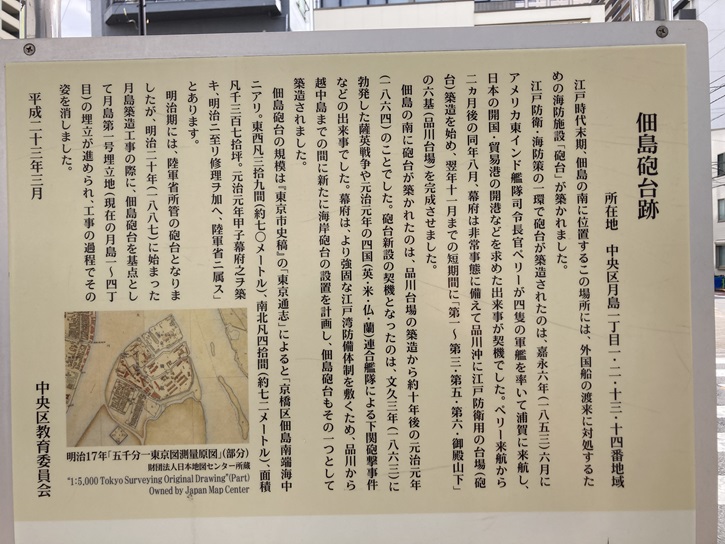 佃島砲台跡
所在地 中央区月島一丁目一・二・十三・十四番地域
江戸時代末期、佃島の南に位置するこの場所には、外国船の渡来に対処するた
めの海防施設「砲台」が築かれました。
江戸防衛・海防策の一環で砲台が築造されたのは、嘉永六年(一八五三)六月に
アメリカ東インド艦隊司令長官ペリーが四隻の軍艦を率いて浦賀に来航し、
日本の開国・貿易港の開港などを求めた出来事が契機でした。ペリー来航から
二ヵ月後の同年八月、幕府は非常事態に備えて品川沖に江戸防衛用の台場(砲
台)築造を始め、翌年十一月までの短期間に「第一～第三・第五・第六・御殿山下」
の六基(品川台場)を完成させました。
佃島の南に砲台が築かれたのは、品川台場の築造から約十年後の元治元年
(一八六四)のことでした。砲台新設の契機となったのは、文久三年(一八六三)に
勃発した薩英戦争や元治元年の四国(英・米・仏・蘭)連合艦隊による下関砲撃事件
などの出来事でした。幕府は、より強固な江戸湾防備体制を敷くため、品川から
越中島までの間に新たに海岸砲台の設置を計画し、佃島砲台もその一つとして
築造されました。
佃島砲台の規模は『東京市史稿』の「東京通志」によると「京橋区佃島南端海中
ニアリ。東西凡三拾九間(約七〇メートル)、南北凡四拾間(約七二メートル)、面積
凡千三百七拾坪。元治元年甲子幕府之ヲ築
キ、明治ニ至リ修理ヲ加ヘ、陸軍省ニ属ス」
とあります。
明治期には、陸軍省所管の砲台となりま
したが、明治二十年(一八八七)に始まった
月島築造工事の際に、佃島砲台を基点とし
て月島第一号埋立地(現在の月島一～四丁
目)の埋立が進められ、工事の過程でその
姿を消しました。
平成二十三年三月
中央区教育委員会
明治17年「五千分一東京図測量原図」(部分)
財団法人日本地図センター所蔵
"1:5,000 Tokyo Surveying Original Drawing"(Part)
Owned by Japan Map Center